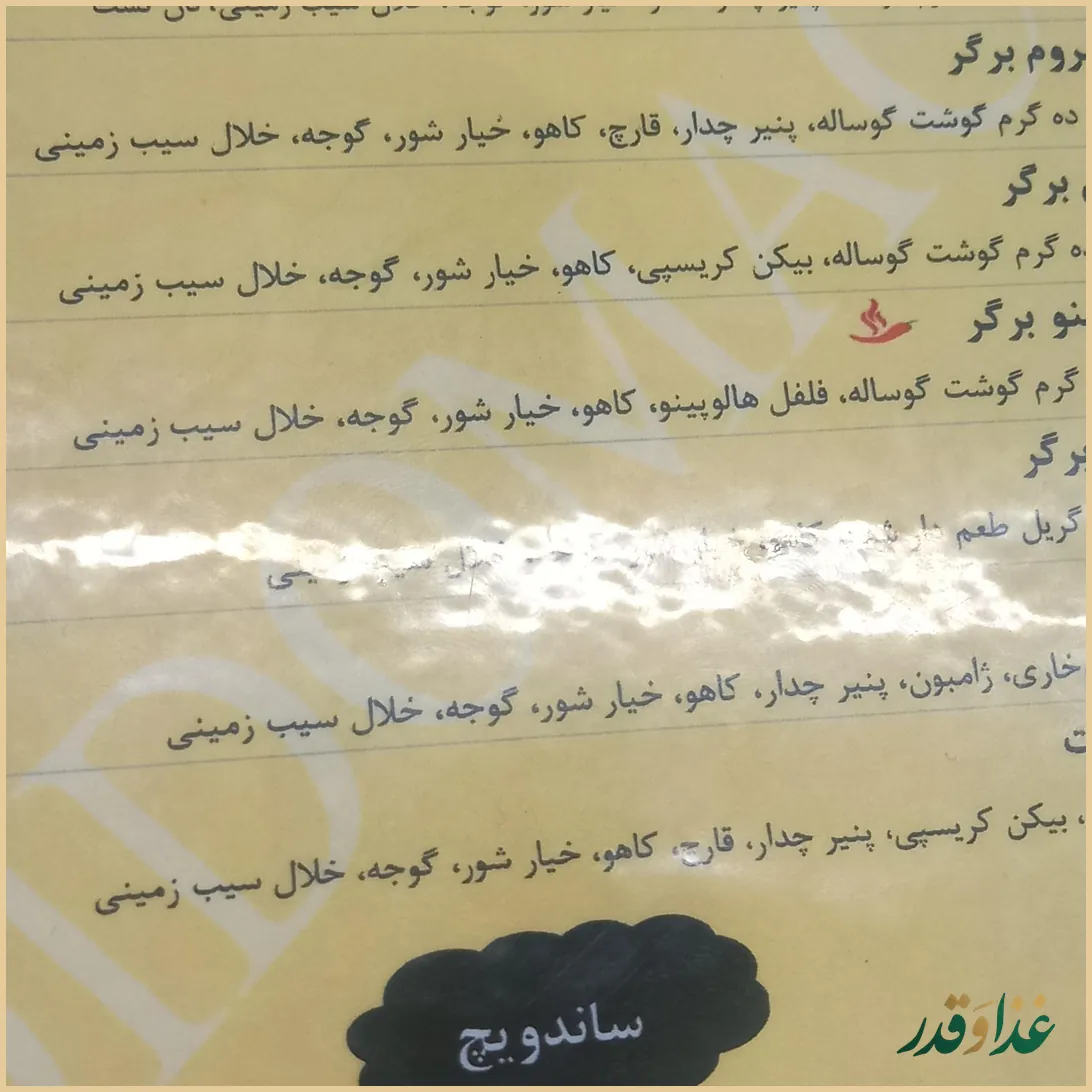 روم برگر
ده گرم گوشت گوساله، پنیر چدار، قارچ، کاهو، خیار شور، گوجه، خلال سیب زمینی
برگر
گرم گوشت گوساله، بیکن کریسپی، کاهو، خیار شور، گوجه، خلال سیب زمینی
نو برگر
گرم گوشت گوساله، فلفل هالوپینو، کاهو، خیار شور، گوجه، خلال سیب زمینی
برگر
گریل طعم
خاری، ژامبون، پنیر چدار، کاهو، خیار شور، گوجه، خلال سیب زمینی
ت
، بیکن کریسپی، پنیر چدار، قارچ، کاهو، خیار شور، گوجه، خلال سیب زمینی
ساندویچ
غذا و قدر